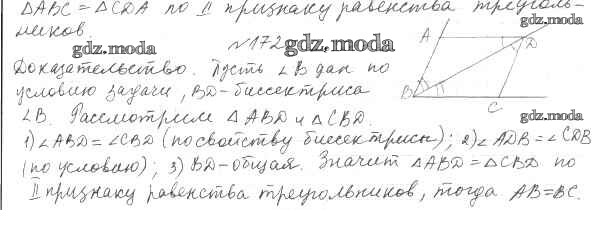 △ABC = △CDA по II признаку равенства треуголь-
ников
gdz.moda
№172 gdz.moda
Доказательство. Пусть ∠B дан по
условию задачи, BD-биссектриса
∠B. Рассмотрим △ABD и △CBD.
1) ∠ABD = ∠CBD (по свойству биссектрисы); 2) ∠ADB = ∠CDB
(по условию); 3) BD-общая. Значит △ABD = △CBD по
II признаку равенства треугольников, тогда AB=BC.
A
D
B
C
gdz.moda
gdz.moda
gdz.moda